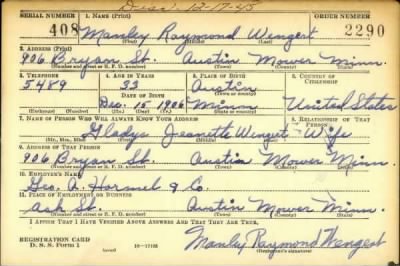 Disc. 12-17-45
SERIAL NUMBER 1. NAME (Print) ORDER NUMBER
408 Manley Raymond Wengert 2290
(First) (Middle) (Last)
2. ADDRESS (Print)
906 Bryan St. Austin Mower Minn.
(Number and street or R. F. D. number) (Town) (County) (State)
3. TELEPHONE 4. AGE IN YEARS 5. PLACE OF BIRTH 6. COUNTRY OF CITIZENSHIP
5489 33 Austin
DATE OF BIRTH (Town or county)
Dec. 15 1906 Minn United States
(Exchange) (Number) (Mo.) (Day) (Yr.) (State or country)
7. NAME OF PERSON WHO WILL ALWAYS KNOW YOUR ADDRESS 8. RELATIONSHIP OF THAT PERSON
Gladys Jeanette Wengert Wife
(Mr., Mrs., Miss) (First) (Middle) (Last)
9. ADDRESS OF THAT PERSON
906 Bryan St. Austin Mower Minn.
(Number and street or R. F. D. number) (Town) (County) (State)
10. EMPLOYER'S NAME
Geo. A. Hormel & Co.
11. PLACE OF EMPLOYMENT OR BUSINESS
Ash St. Austin Mower Minn.
(Number and street or R. F. D. number) (Town) (County) (State)
I AFFIRM THAT I HAVE VERIFIED ABOVE ANSWERS AND THAT THEY ARE TRUE.
REGISTRATION CARD
D. S. S. FORM 1 16-17105
Manley Raymond Wengert
(Registrant's signature)